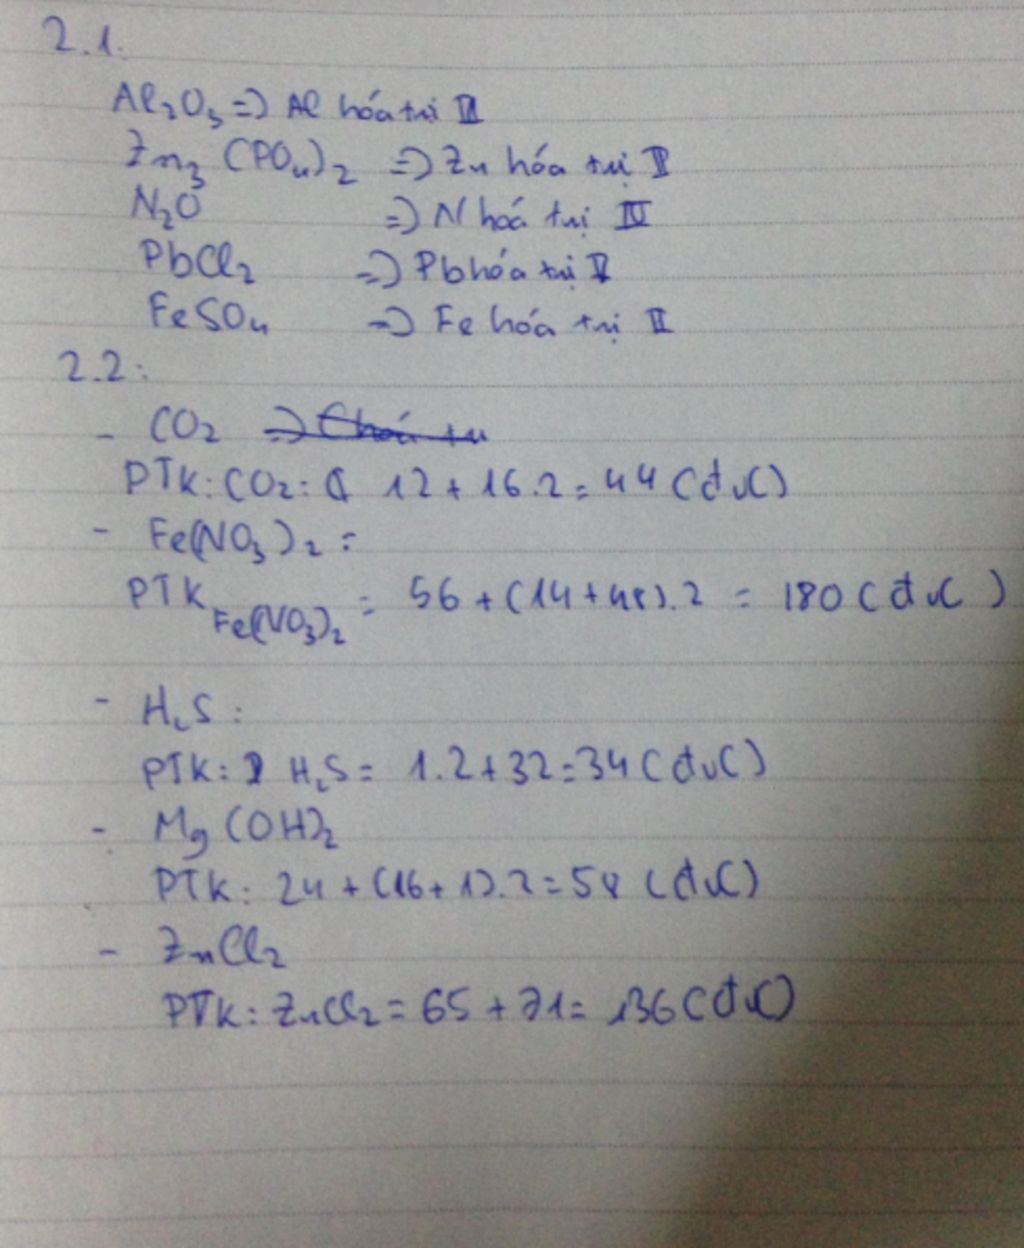 2.1.
Al₂O₃ => Al hóa trị III
Zn₃(PO₄)₂ => Zn hóa trị II
N₂O => N hoá trị IV
PbCl₂ => Pb hóa trị II
FeSO₄ => Fe hóa trị II
2.2:
- CO₂
PTK: CO₂: 12 + 16.2 = 44 (đvC)
- Fe(NO₃)₂ :
PTK Fe(NO₃)₂ = 56 + (14 + 48).2 = 180 (đvC)
- H₂S :
PTK: H₂S = 1.2 + 32 = 34 (đvC)
- Mg(OH)₂
PTK: 24 + (16 + 1).2 = 58 (đvC)
- ZnCl₂
PTK: ZnCl₂ = 65 + 71 = 136 (đvC)